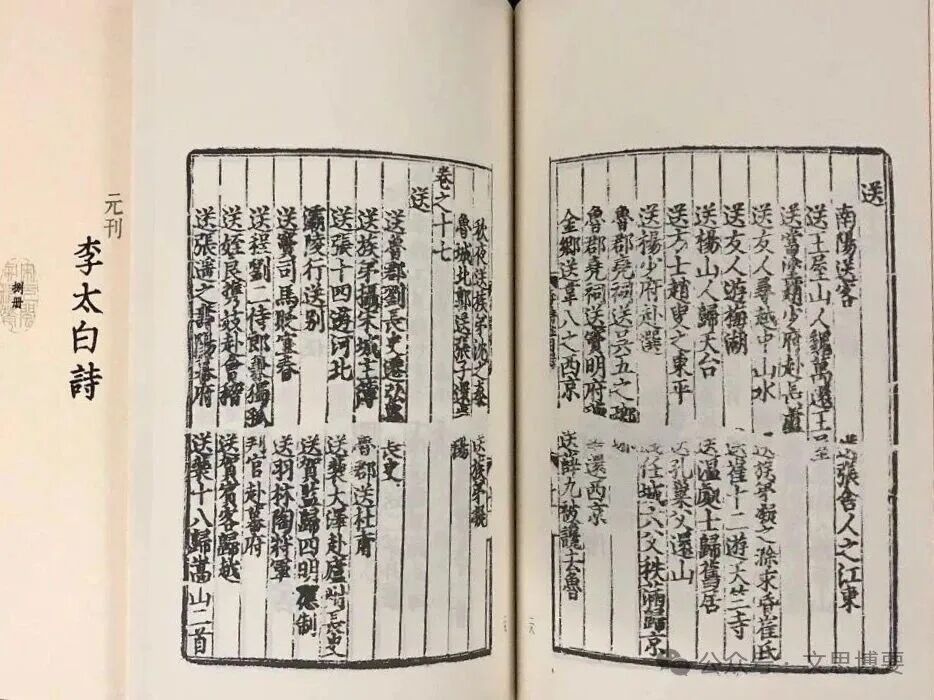 送
南陽送客
送張舍人之江東
送王屋山人魏萬還王屋
送當塗趙少府赴長蘆
送友人尋越中山水
送族弟凝之滁求婚崔氏
送友人遊梅湖
送崔十二遊天竺寺
送楊山人歸天台
送溫處士歸舊居
送方士趙叟之東平
送孔巢父還山
送楊少府赴選
送任城六父秩滿歸京
魯郡堯祠送吳五之瑯
魯郡堯祠送竇明府
還西京
金鄉送韋八之西京
送薛九被讒去魯
二八
秋夜送族弟沈之秦
送族弟凝
魯城北郭送張子還嵩
陽
卷之十七
送
送魯郡劉長史遷弘農
長史
送族弟攝宋城主簿
魯郡送杜甫
送張十四遊河北
送裴大澤赴廬州長史
灞陵行送别
送賀監歸四明應制
送竇司馬貶宜春
送羽林陶將軍
送程劉二侍郎兼獨孤
判官赴幕府
送姪良攜妓赴會稽
送賀賓客歸越
送張遙之壽陽幕府
送裴十八歸嵩山二首
元刊
李太白詩
捌册
公众号·文思博要